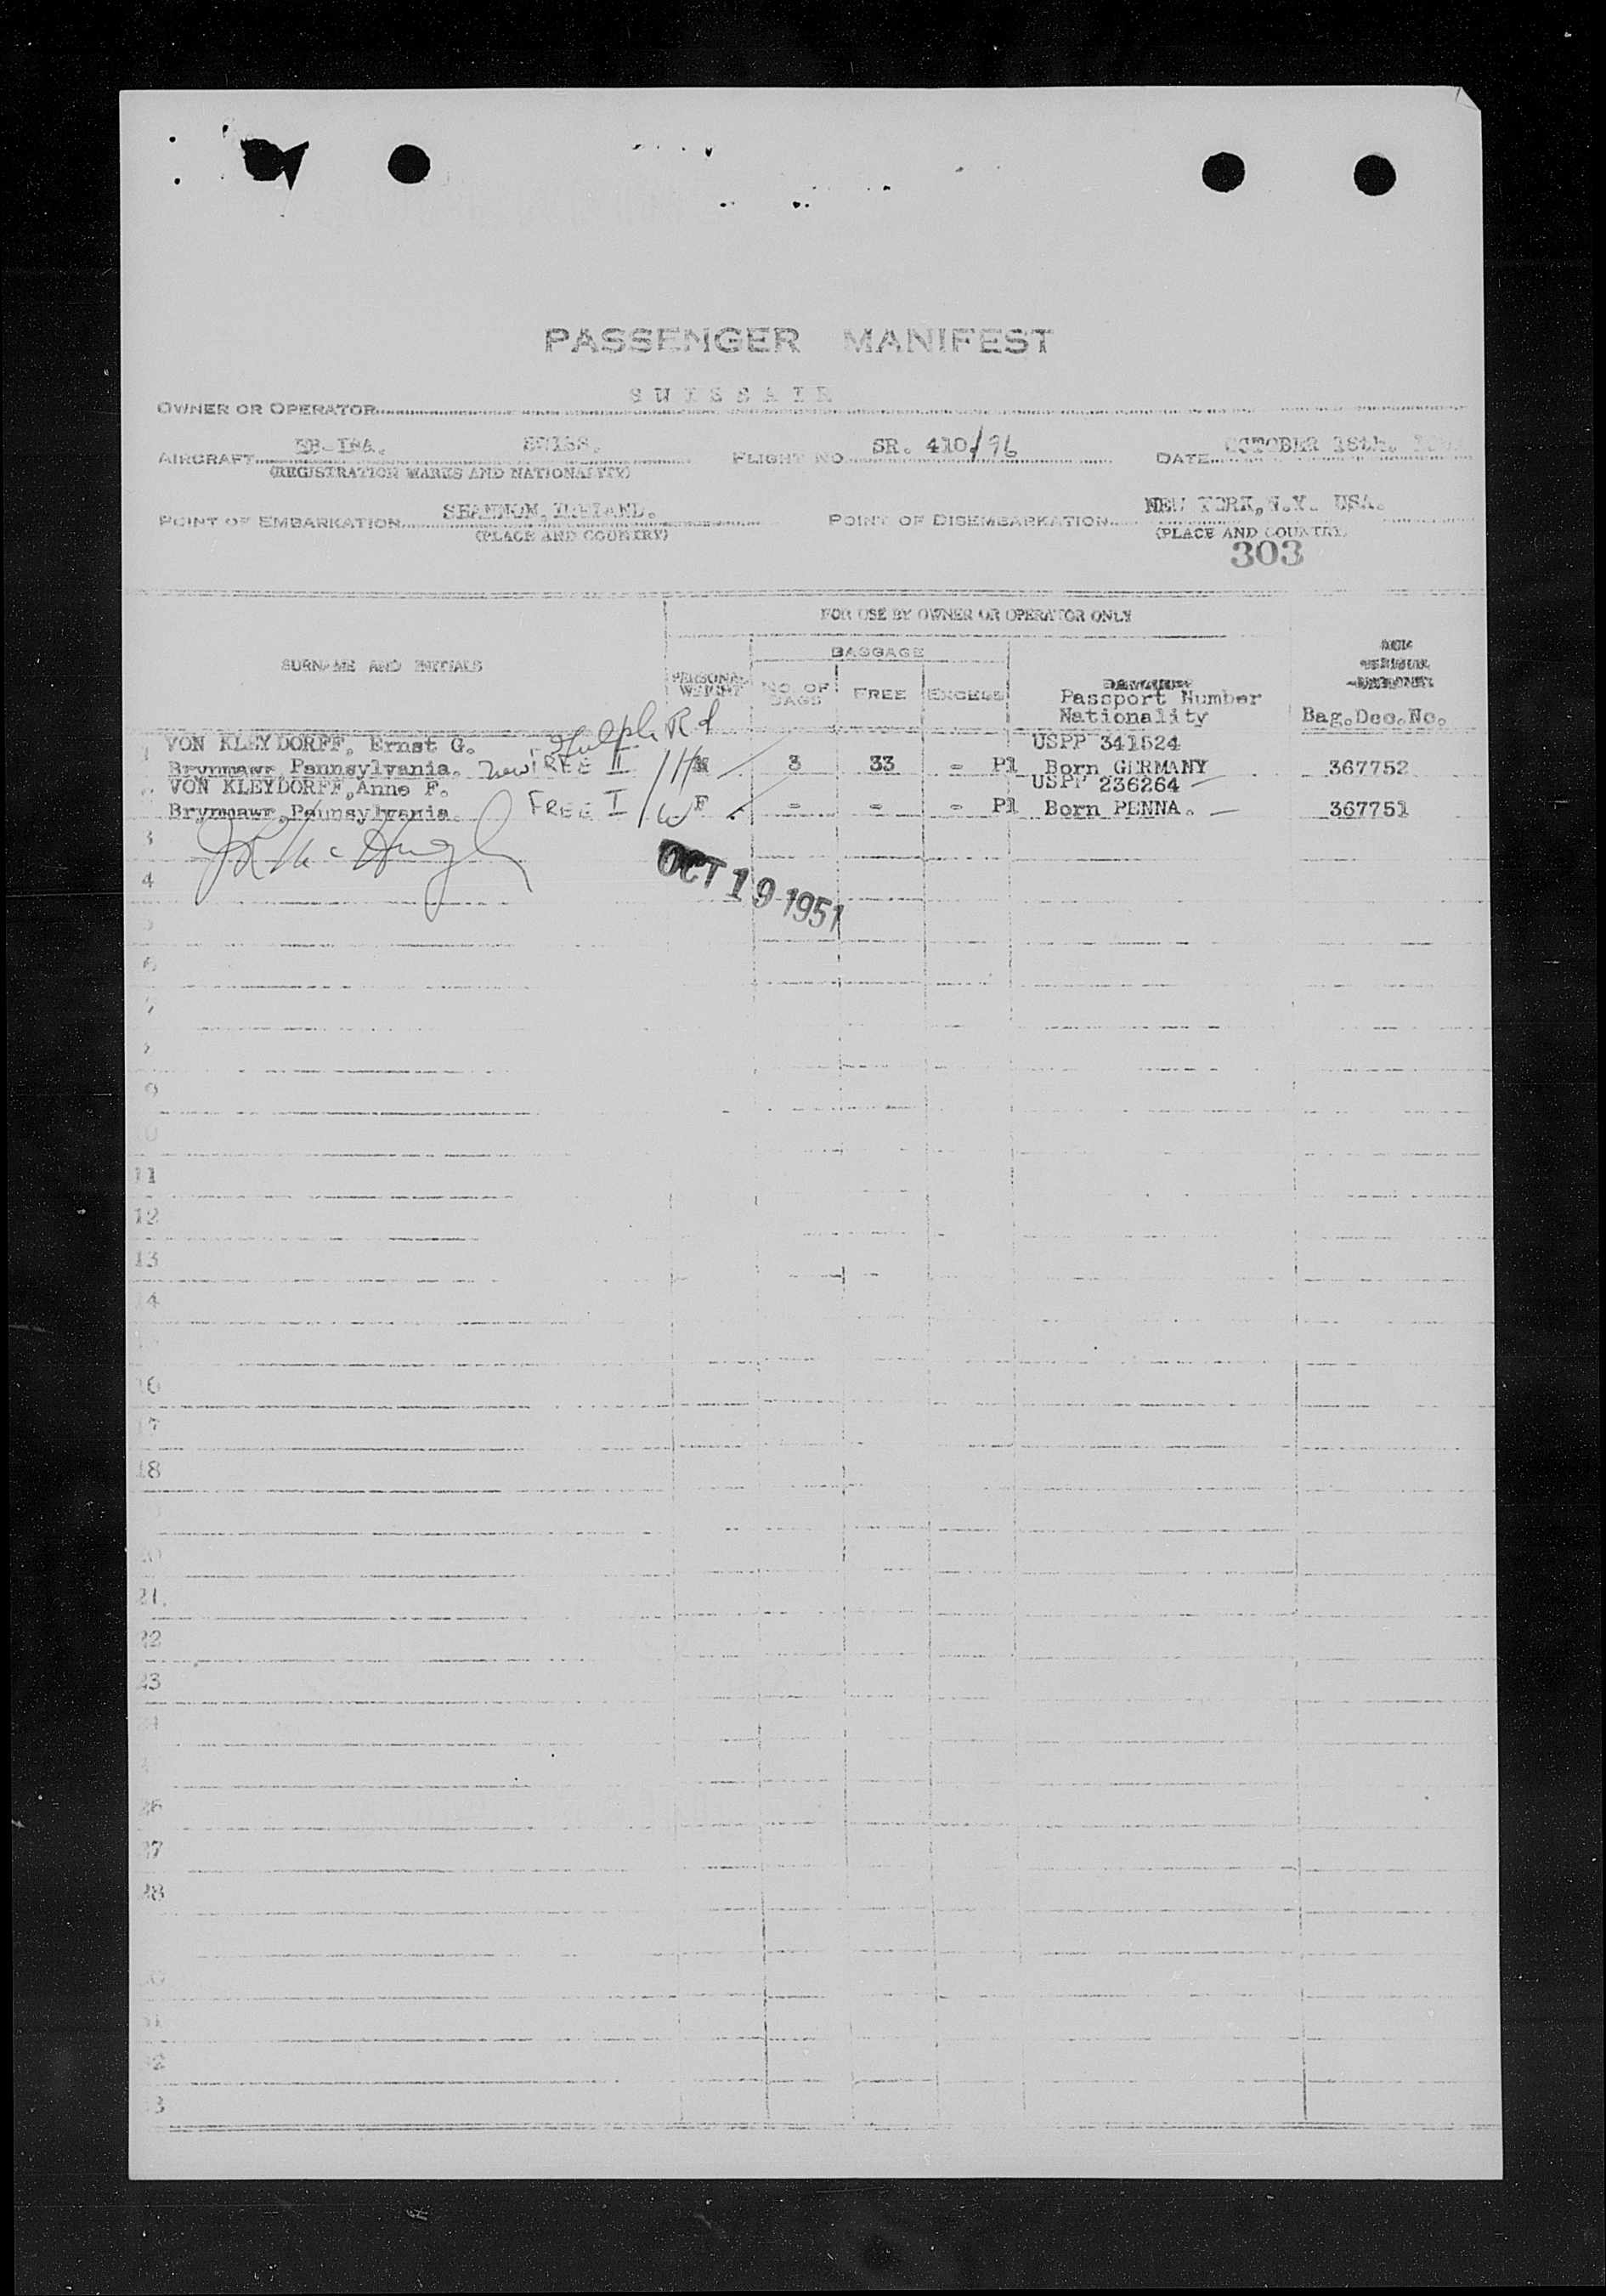 PASSENGER MANIFEST
OWNER OR OPERATOR SWISSAIR
AIRCRAFT SWISS. FLIGHT NO. SR. 410/96 DATE OCTOBER 18th.
(REGISTRATION MARKS AND NATIONALITY)
POINT OF EMBARKATION SHANNON, IRELAND. POINT OF DISEMBARKATION NEW YORK, N.Y. USA.
(PLACE AND COUNTRY) (PLACE AND COUNTRY)
303
FOR USE BY OWNER OR OPERATOR ONLY
SURNAME AND INITIALS
PERSONAL WEIGHT
BAGGAGE
NO. OF BAGS
FREE
EXCESS
Passport Number
Nationality
Bag.Dec.No.
Gulph Rd
1 VON KLEYDORFF, Ernst G. USPP 341524
Brynmawr, Pennsylvania. FREE II M 3 33 - Pl Born GERMANY 367752
VON KLEYDORFF, Anne F. USPP 236264
Brynmawr, Pennsylvania. FREE I W F - - - Pl Born PENNA. 367751
3
4
OCT 19 1951
6
7
9
11
12
13
14
16
17
18
21.
22
23
26
27
28